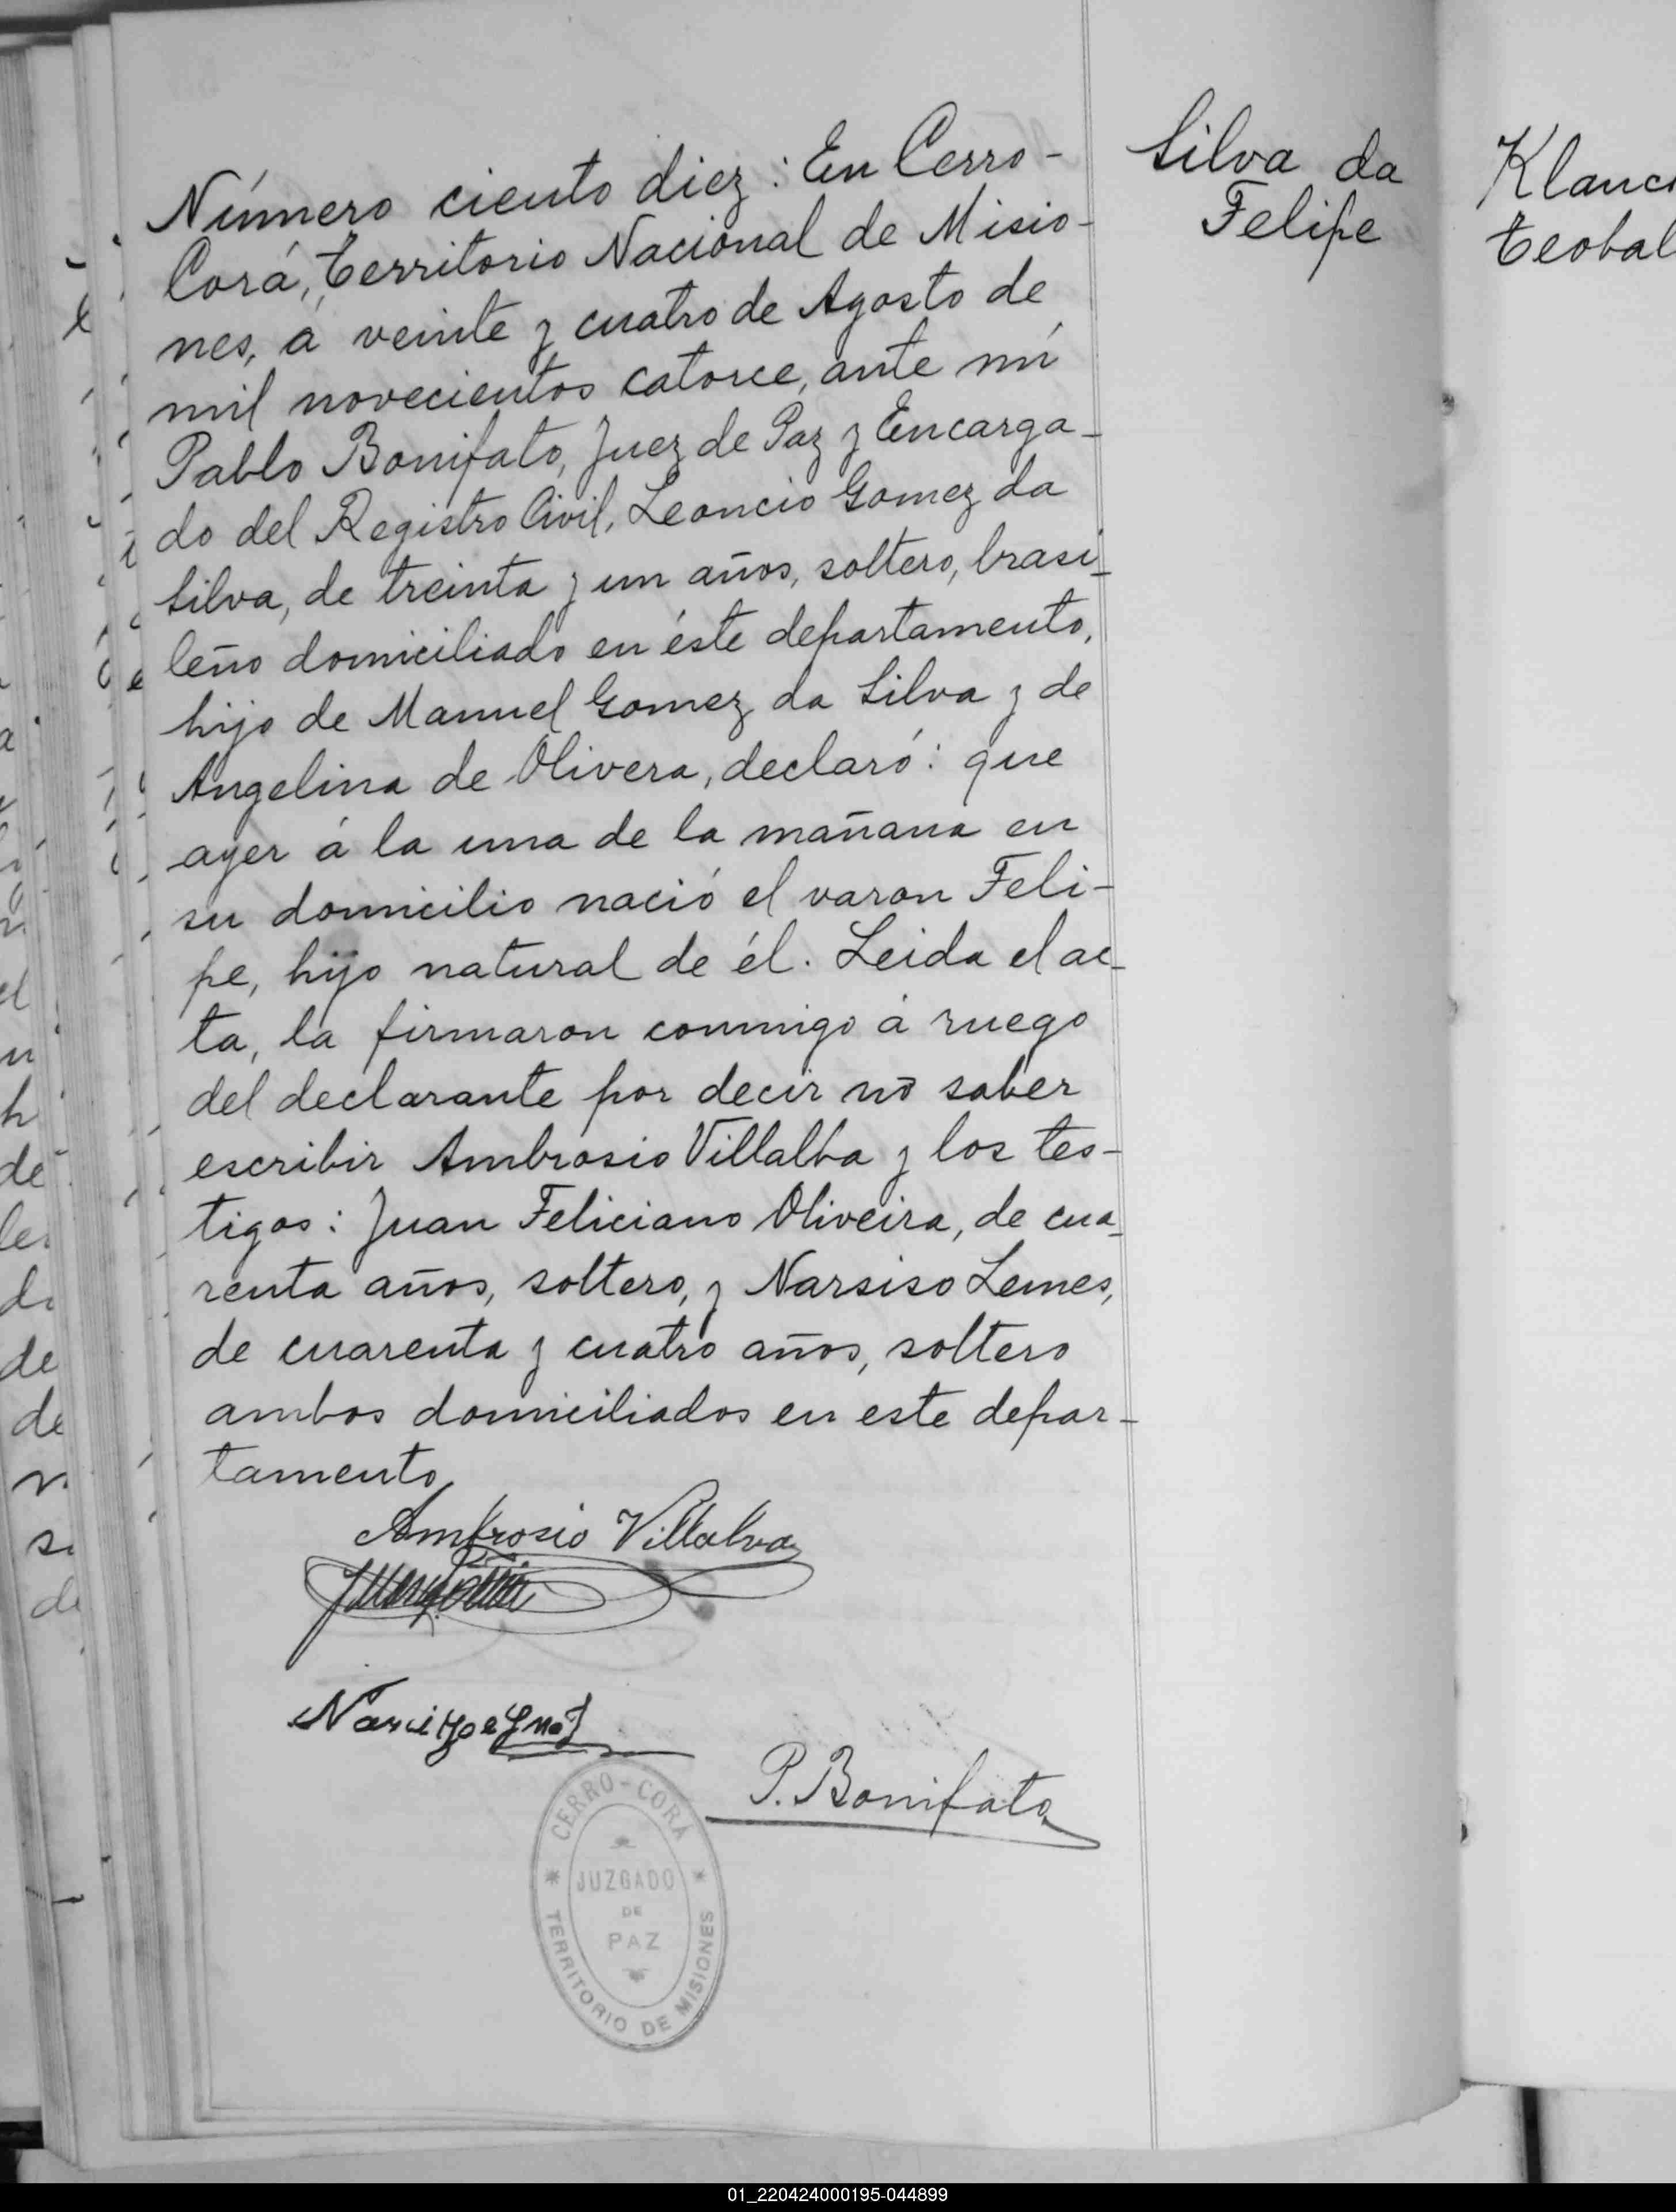 Número ciento diez: En Cerro-
Corá, Territorio Nacional de Misio-
nes, á veinte y cuatro de Agosto de
mil novecientos catorce, ante mí
Pablo Bonifato, Juez de Paz y Encarga-
do del Registro Civil, Leoncio Gomez da
Silva, de treinta y un años, soltero, brasi-
leño domiciliado en éste departamento,
hijo de Manuel Gomez da Silva y de
Angelina de Olivera, declaró: que
ayer á la una de la mañana en
su domicilio nació el varon Feli-
pe, hijo natural de él. Leida el ac-
ta, la firmaron conmigo á ruego
del declarante por decir no saber
escribir Ambrosio Villalba y los tes-
tigos: Juan Feliciano Oliveira, de cua-
renta años, soltero, y Narsiso Lemes,
de cuarenta y cuatro años, soltero
ambos domiciliados en este depar-
tamento
Ambrosio Villalva
P. Bonifato
CERRO-CORÁ
JUZGADO
DE
PAZ
TERRITORIO DE MISIONES
Silva da
Felipe
Klanc
Teobal
01_220424000195-044899